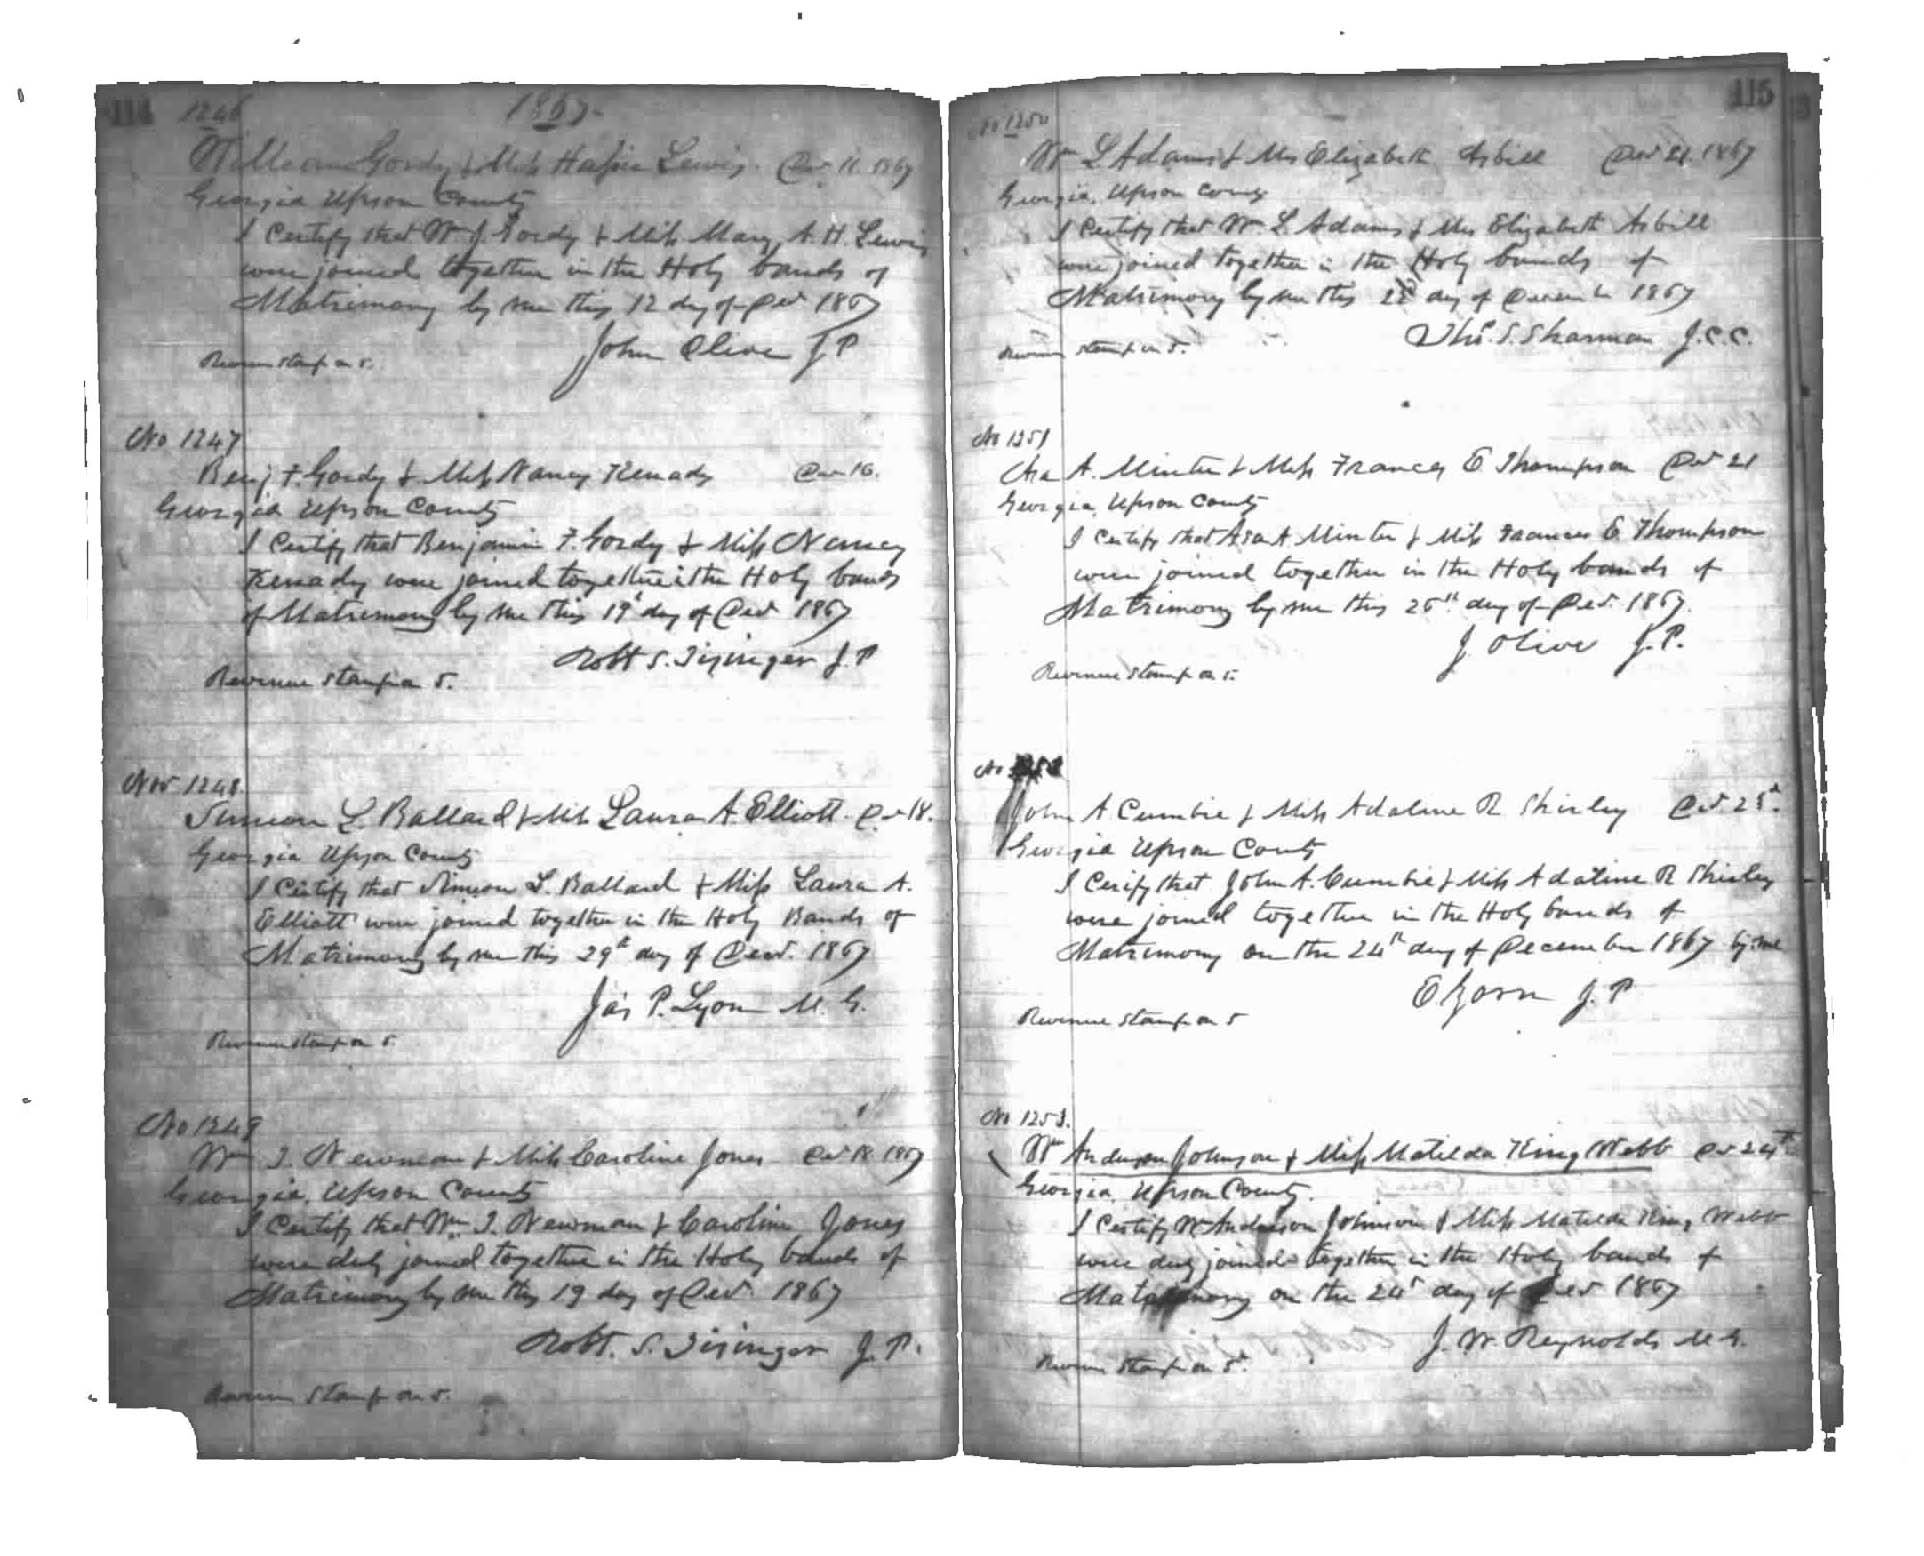 114 1246 1867
William Gordy & Miss Hassie Lewis. Dec 11. 1867
Georgia Upson County
I Certify that W. J. Gordy & Miss Mary A. H. Lewis
were joined together in the Holy bands of
Matrimony by me this 12 day of Decr 1867
John Olive J P
Revenue stamp on 5.
No 1247
Benj F. Gordy & Miss Nancy Kenady Decr 16.
Georgia Upson County
I Certify that Benjamin F. Gordy & Miss Nancy
Kenady were joined together i the Holy bands
of Matrimony by me this 19th day of Decr 1867
Robt S. Tisinger J. P
Revenue stamp on 5.
No 1248
Simeon L. Ballard & Miss Laura A. Elliott. Decr 18.
Georgia Upson County
I Certify that Simeon L. Ballard & Miss Laura A.
Elliott were joined together in the Holy Bands of
Matrimony by me this 29th day of Decr. 1867
Jas P. Lyon M. G.
Revenue stamp on 5
No 1249
Wm J. Newman & Miss Caroline Jones Decr 18 1867
Georgia, Upson County
I Certify that Wm. J. Newman & Caroline Jones
were duly joined together in the Holy bands of
Matrimony by me this 19 day of Decr 1867
Robt. S. Tisinger J. P.
Revenue Stamp on 5.
115
No 1250
Wm L Adams & Mrs Elizabeth Asbill Decr 21. 1867
Georgia, Upson County
I Certify that Wm L Adams & Mrs Elizabeth Asbill
were joined together in the Holy bands of
Matrimony by me this day of December 1867
Thos. S. Sharman J. C. C.
Revenue stamp on 5.
No 1251
Asa A. Minter & Miss Frances E Thompson Decr 21
Georgia, Upson County
I Certify that Asa A Minter & Miss Frances E Thompson
were joined together in the Holy bands of
Matrimony by me this 26th day of Decr. 1867.
J. Olive J. P.
Revenue Stamp on 5.
No
John A Cumbie & Miss Adaline R Shirley Decr. 23d.
Georgia Upson County
I Cerify that John A. Cumbie & Miss Adaline R Shirley
were joined together in the Holy bands of
Matrimony on the 24th day of December 1867 by me
E Zorn J. P
Revenue Stamp on 5
No 1253.
Wm Anderson Johnson & Miss Matilda King Webb Decr 24th
Georgia, Upson County.
I Certify Wm Anderson Johnson & Miss Matilda King Webb
were duly joined together in the Holy bands of
Matrimony on the 24th day of Decr 1867
J. W. Reynolds M. G.
Revenue Stamp on 5.